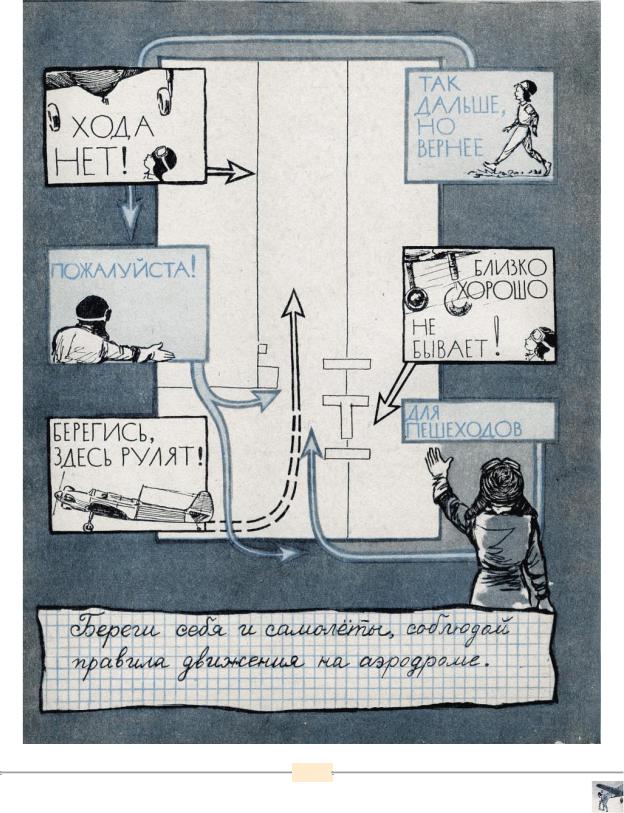 ХОДА
НЕТ!
ТАК
ДАЛЬШЕ,
НО
ВЕРНЕЕ
ПОЖАЛУЙСТА!
БЛИЗКО
ХОРОШО
НЕ
БЫВАЕТ!
БЕРЕГИСЬ,
ЗДЕСЬ РУЛЯТ!
ДЛЯ
ПЕШЕХОДОВ
Береги себя и самолёты, соблюдай
правила движения на аэродроме.